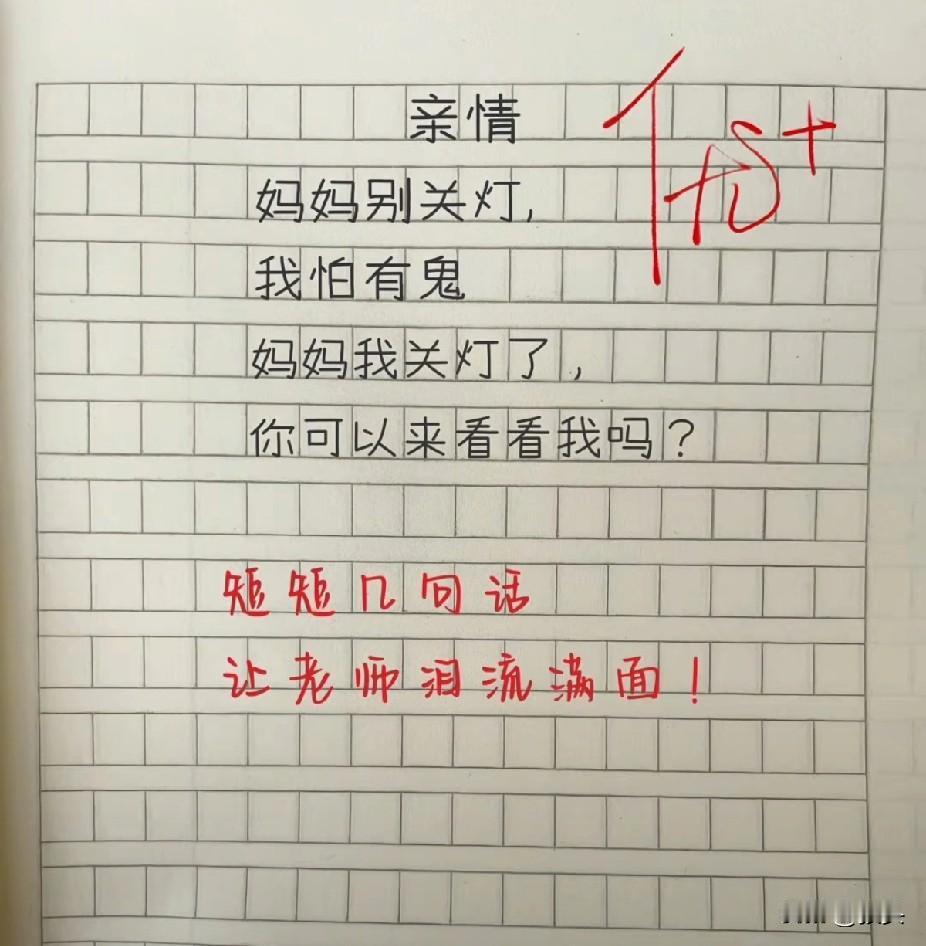 亲情
优+
妈妈别关灯,
我怕有鬼
妈妈我关灯了,
你可以来看看我吗?
短短几句话
让老师泪流满面!